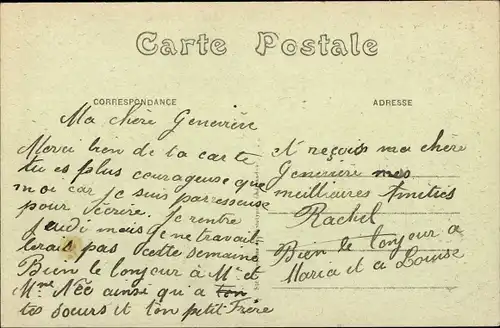 Carte Postale
CORRESPONDANCE
ADRESSE
Ma chère Geneviève
Merci bien de ta carte
tu es plus courageuse que
moi car je suis paresseuse
pour écrire. Je rentre
jeudi mais je ne travail
lerais pas cette semaine
Bien le bonjour à Mr et
Mme Née ainsi qu'a ton
tes sœurs et ton petit Frère
Et reçois ma chère
Geneviève mes
meilliaires Amitiés
Rachel
Bien le bonjour a
Maria et a Louise